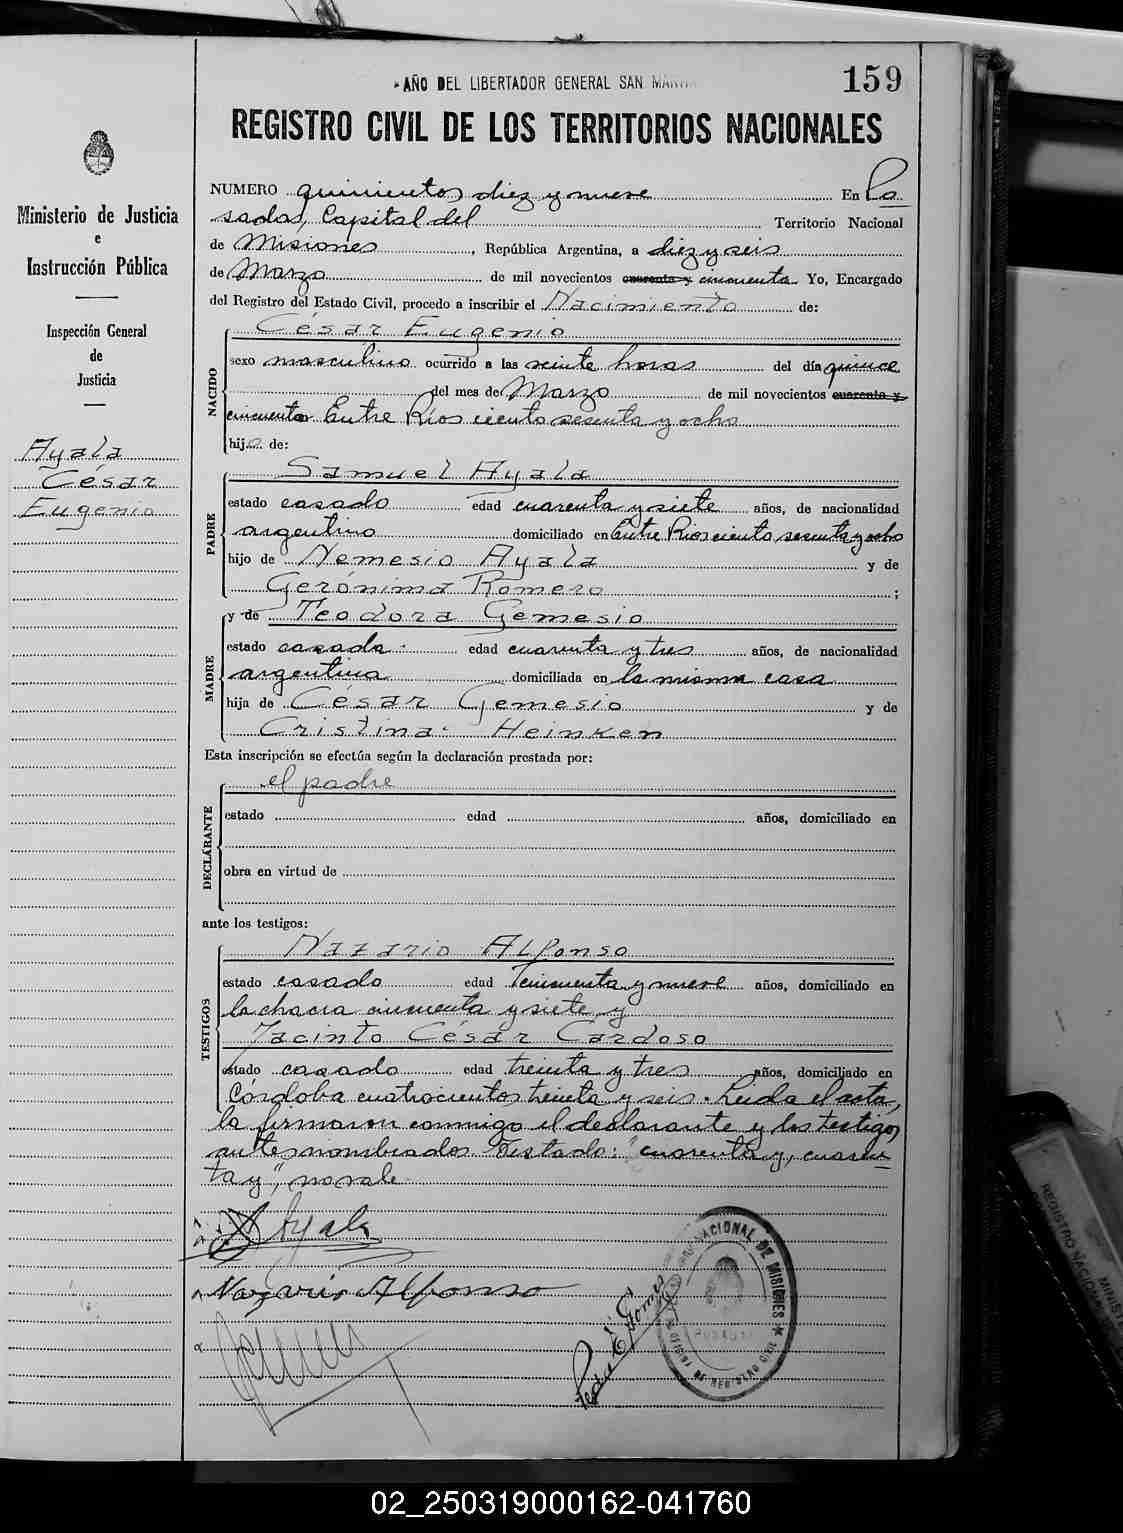 159
AÑO DEL LIBERTADOR GENERAL SAN MARTIN
REGISTRO CIVIL DE LOS TERRITORIOS NACIONALES
Ministerio de Justicia
e
Instrucción Pública
Inspección General
de
Justicia
Ayala
César
Eugenio
NUMERO quinientos diez y nueve En Po
sadas, Capital del Territorio Nacional
de Misiones, República Argentina, a diez y seis
de Marzo de mil novecientos cuarenta y cincuenta Yo, Encargado
del Registro del Estado Civil, procedo a inscribir el Nacimiento de:
NACIDO
César Eugenio
sexo masculino ocurrido a las veinte horas del día quince
del mes de Marzo de mil novecientos cuarenta y
cincuenta Entre Ríos ciento sesenta y ocho
hijo de:
PADRE
Samuel Ayala
estado casado edad cuarenta y siete años, de nacionalidad
argentino domiciliado en Entre Rios ciento sesenta y ocho
hijo de Nemesio Ayala y de
Gerónima Romero;
MADRE
y de Teodora Gemesio
estado casada edad cuarenta y tres años, de nacionalidad
argentina domiciliada en la misma casa
hija de César Gemesio y de
Cristina Heinken
Esta inscripción se efectúa según la declaración prestada por:
DECLARANTE
el padre
estado edad años, domiciliado en
obra en virtud de
ante los testigos:
TESTIGOS
Nazario Alfonso
estado casado edad cincuenta y nueve años, domiciliado en
la chacra cincuenta y siete y
Jacinto César Cardoso
estado casado edad treinta y tres años, domiciliado en
Córdoba cuatrocientos treinta y seis. Leida el acta,
la firmaron conmigo el declarante y los testigos
antes nombrados. Testado: "cuarenta y, cuaren-
ta y", no vale.
S Ayala
Nazario Alfonso
Pedro E. Gomes
NACIONAL DE MISIONES
OFICINA DE REGISTRO CIVIL
POSADAS
REGISTRO NACIONAL
MINISTE
02_250319000162-041760